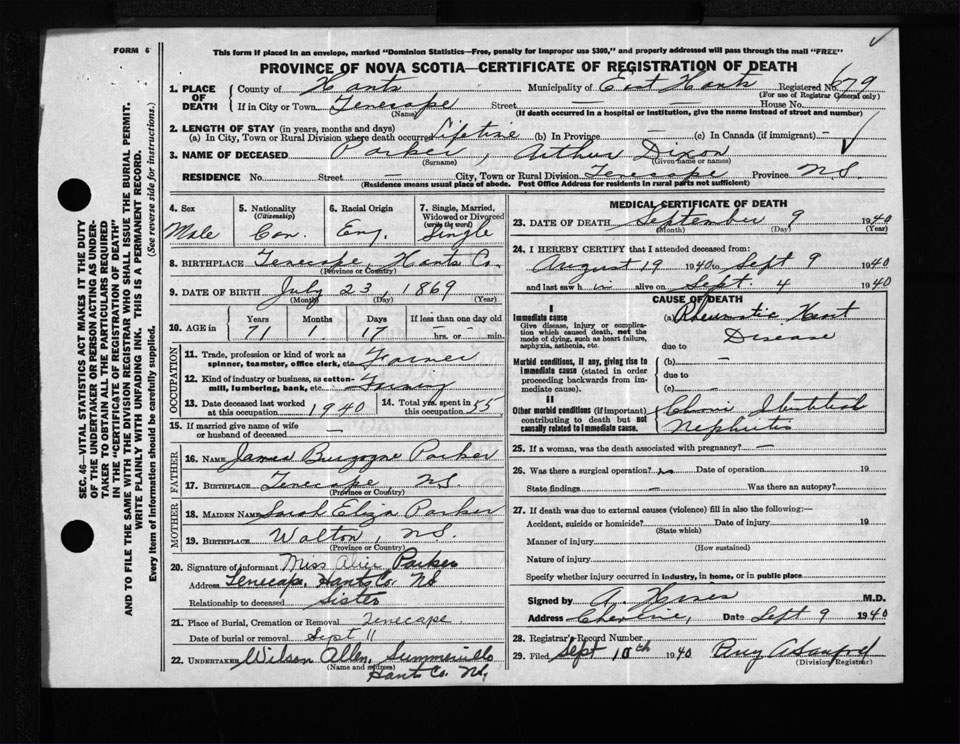 FORM 6
This form if placed in an envelope, marked "Dominion Statistics—Free, penalty for improper use $300," and properly addressed will pass through the mail "FREE"
PROVINCE OF NOVA SCOTIA—CERTIFICATE OF REGISTRATION OF DEATH
SEC. 46—VITAL STATISTICS ACT MAKES IT THE DUTY
OF THE UNDERTAKER OR PERSON ACTING AS UNDER-
TAKER TO OBTAIN ALL THE PARTICULARS REQUIRED
IN THE "CERTIFICATE OF REGISTRATION OF DEATH"
AND TO FILE THE SAME WITH THE DIVISION REGISTRAR WHO SHALL ISSUE THE BURIAL PERMIT.
WRITE PLAINLY WITH UNFADING INK. THIS IS A PERMANENT RECORD.
Every item of information should be carefully supplied. (See reverse side for instructions.)
1. PLACE OF DEATH County of Hants Municipality of East Hants Registered No. 679
(For use of Registrar General only)
If in City or Town Tenecape Street — House No. —
(Name) (If death occurred in a hospital or institution, give the name instead of street and number)
2. LENGTH OF STAY (in years, months and days)
(a) In City, Town or Rural Division where death occurred Lifetime (b) In Province — (c) In Canada (if immigrant) —
3. NAME OF DECEASED Parker, Arthur Dixon
(Surname) (Given name or names)
RESIDENCE No. Street — City, Town or Rural Division Tenecape Province N.S.
(Residence means usual place of abode. Post Office Address for residents in rural parts not sufficient)
4. Sex 5. Nationality (Citizenship) 6. Racial Origin 7. Single, Married, Widowed or Divorced (write the word)
Male Can. Eng. Single
8. BIRTHPLACE Tenecape, Hants Co.
(Province or Country)
9. DATE OF BIRTH July 23, 1869
(Month) (Day) (Year)
10. AGE in Years Months Days If less than one day old
71 1 17 - hrs. or - min.
OCCUPATION
11. Trade, profession or kind of work as spinner, teamster, office clerk, etc. Farmer
12. Kind of industry or business, as cotton-mill, lumbering, bank, etc. Farming
13. Date deceased last worked at this occupation 1940 14. Total yrs. spent in this occupation 55
15. If married give name of wife or husband of deceased —
FATHER
16. NAME James Burgoyne Parker
17. BIRTHPLACE Tenecape, N.S.
(Province or Country)
MOTHER
18. MAIDEN NAME Sarah Eliza Parker
19. BIRTHPLACE Walton, N.S.
(Province or Country)
20. Signature of informant Miss Alice Parker
Address Tenecape, Hants Co. N.S
Relationship to deceased Sister
21. Place of Burial, Cremation or Removal Tenecape
Date of burial or removal Sept 11
22. UNDERTAKER Wilson Allen, Summerville
(Name and address) Hants Co. N.S.
MEDICAL CERTIFICATE OF DEATH
23. DATE OF DEATH September 9 1940
(Month) (Day) (Year)
24. I HEREBY CERTIFY that I attended deceased from:
August 19 1940 to Sept 9 1940
and last saw h im alive on Sept. 4 1940
CAUSE OF DEATH
I
Immediate cause (a) Rheumatic Heart
Give disease, injury or complication which caused death, not the mode of dying, such as heart failure, asphyxia, asthenia, etc. due to Disease
Morbid conditions, if any, giving rise to immediate cause (stated in order proceeding backwards from immediate cause). (b) —
due to
(c) —
II
Other morbid conditions (if important) contributing to death but not causally related to immediate cause. Nephritis
25. If a woman, was the death associated with pregnancy? —
26. Was there a surgical operation? no Date of operation 19
State findings — Was there an autopsy?
27. If death was due to external causes (violence) fill in also the following:—
Accident, suicide or homicide? Date of injury 19
(State which)
Manner of injury
(How sustained)
Nature of injury
Specify whether injury occurred in industry, in home, or in public place
Signed by M.D.
Address Date Sept 9 1940
28. Registrar's Record Number
29. Filed Sept 10th 1940
(Division Registrar)